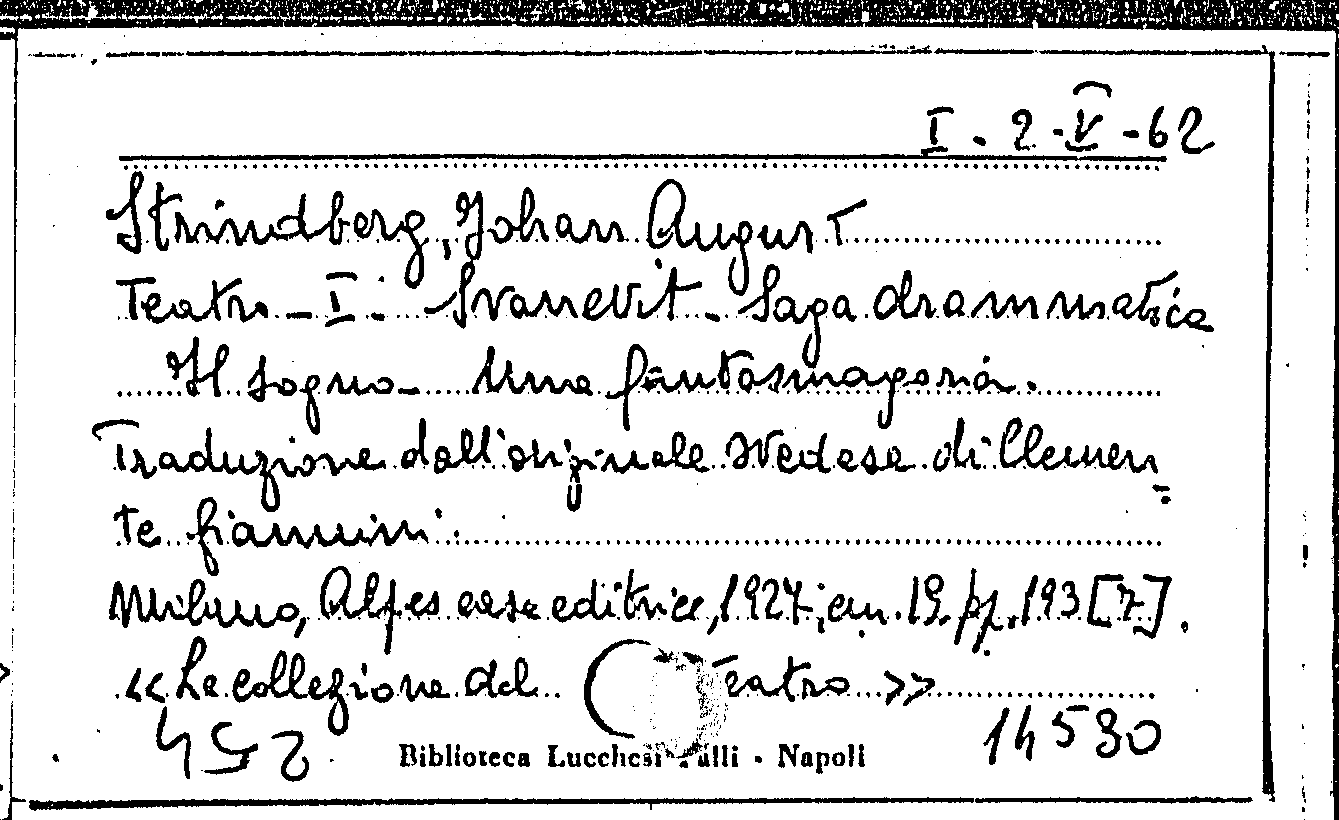 I - 2 - V - 62
Strindberg, Johan August
Teatro - I - Svanevit - Saga drammatica
Il sogno - Una fantasmagoria.
Traduzione dall'originale svedese di Clemen=
te Giannini.
Milano, Alpes casa editrice, 1927; cm. 19. pp. 193 [7].
«La collezione del Teatro»
14530
Biblioteca Lucchesi Palli - Napoli